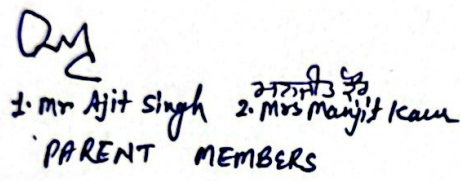 ਮਨਜੀਤ ਕੌਰ
1. Mr Ajit Singh 2. Mrs Manjit Kaur
PARENT MEMBERS